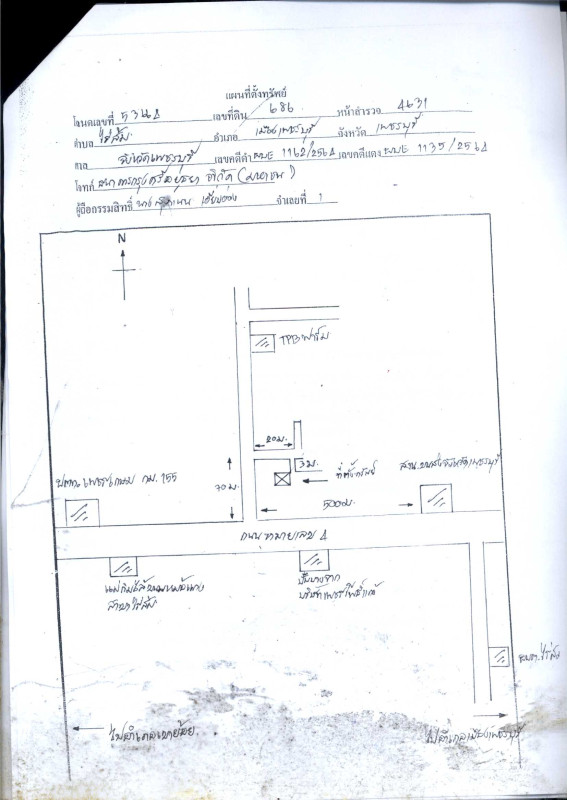 แผนที่ตั้งทรัพย์
โฉนดเลขที่ 5344 เลขที่ดิน 686 หน้าสำรวจ 4631
ตำบล ไร่ส้ม อำเภอ เมืองเพชรบุรี จังหวัด เพชรบุรี
ศาล จังหวัดเพชรบุรี เลขคดีดำ ผบE 1162/2564 เลขคดีแดง ผบE 1135/2564
โจทก์ ธนาคารกรุงศรีอยุธยา จำกัด (มหาชน)
ผู้ถือกรรมสิทธิ์ นาง จำเลยที่ 1
N
TPBฟาร์ม
20ม.
3ม.
ที่ตั้งทรัพย์
70ม.
500ม.
กม. 155
ถนนหมายเลข 4
แม่กิมไล้ขนมหม้อแกง
สาขาไร่ส้ม
ปั๊มบางจาก
อบต.ไร่ส้ม
ไปอำเภอเขาย้อย
ไปอำเภอเมืองเพชรบุรี